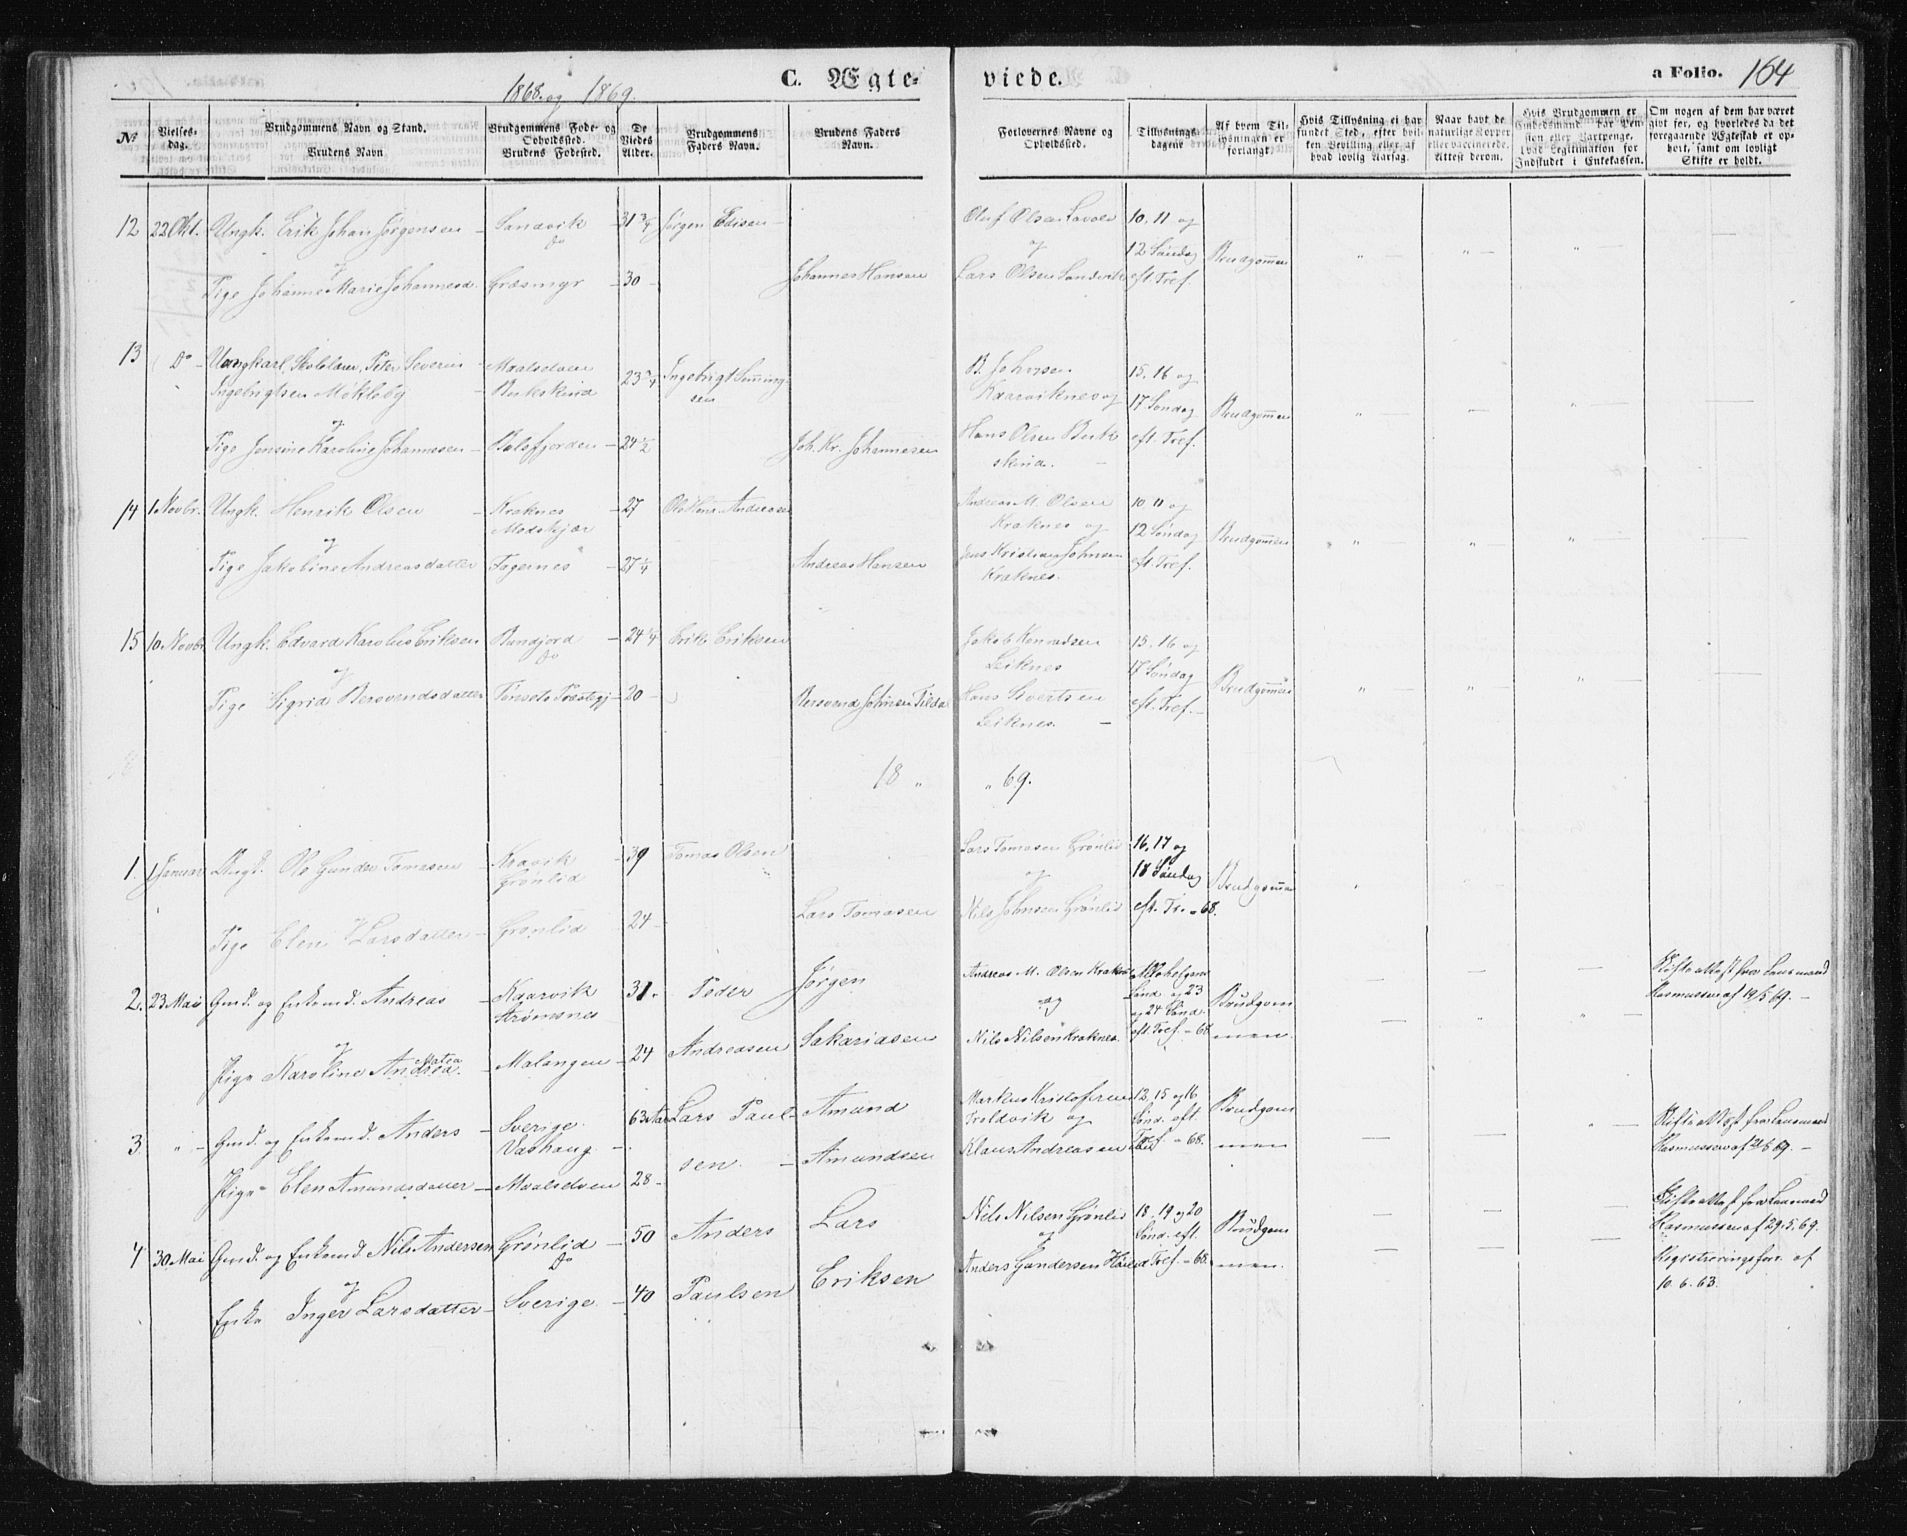 1868 og 1869.
C. Ægte-
viede.
a Folio. 164
No
Vielses-
dag.
Brudgommens Navn og Stand.
Brudens Navn
Brudgommens Føde- og
Opholdssted.
Brudens Fødested.
De
Viedes
Alder.
Brudgommens
Faders Navn.
Brudens Faders
Navn.
Forlovernes Navne og
Opholdssted.
Tillysnings-
dagene
Af hvem Til-
lysningen er
forlangt.
Hvis Tillysning ei har
fundet Sted, efter hvil-
ken Bevilling eller af
hvad lovlig Aarsag.
Naar havt de
naturlige Kopper
eller vaccinerede.
Attest derom.
Hvis Brudgommen er
Embedsmand har Pen-
sion eller Vartpenge,
hvad Legitimation for
Indskudet i Enkekassen.
Om nogen af dem har været
givt før, og hvorledes da det
foregaaende Ægteskab er op-
hørt, samt om lovligt
Skifte er holdt.
12 22 Okt. Ungk. Erik Johan Jørgensen Sandvik 31 3/4 Jørgen Edisen
do
og
Pige Johanne Marie Johannesd. Græsmyr 30 Johannes Hansen
Oluf Olsen
og
Lars Olsen Sandvik
10, 11 og
12 Søndag
eft. Tref.
Brudgommen
13 Do Ungkarl, Skolelærer, Peter Severin Maalselven
Ingebrigtsen Møkleby
23 3/4 Ingebrigt
sen
og
Pige Jensine Karoline Johannesen Balsfjorden 24 1/2 Joh. Kr. Johannesen
B. Johnsen
Kaarviknes og
Hans Olsen Berk
skind.
15, 16 og
17 Søndag
eft. Tref.
Brudgommen
14 1 Novbr. Ungk. Henrik Olsen Kraknes 27 Ole Andreasen
og
Pige Jakobine Andreasdatter Fagernes 27 1/4 Andreas Hansen
Andreas M. Olsen
Kraknes og
Jens Kristian Johnsen
Kraknes.
10 11 og
12 Søndag
eft. Tref.
Brudgommen
15 10 Novbr. Ungk. Edvard Karolius Eriksen 24 1/4 Erik Eriksen
do
og
Pige Sigrid Bersvendsdatter Tønsets Præstegj. 20 Bersvend Johnsen
Jakob Konradsen
Leiknes
Hans Sivertsen
Leiknes.
15, 16 og
17 Søndag
eft. Tref.
Brudgommen
18 " " 69.
1. 1 Januar Ungk. Ole Gunder Tomasen Kravik 39 Tomas Olsen
Grønlid
og
Pige Elen Larsdatter Grønlid 24 Lars Tomasen
Lars Tomasen Grønlid
og
Nils Johnsen Grønlid
16, 17 og
18 Søndag
eft. Tr. - 68.
Brudgommen
2. 23 Mai Gmd. og Enkemd. Andreas Kaarvik 31. Peder Jørgen
Strømsnes
og
Pige Karoline Andrea Matea Malangen 24 Andreasen Sakariasen
Andreas M. Olsen Kraknes
og
Nils Nilsen Kraknes.
Sønd. og 23
og 24 Sønd.
eft. Tref. - 68.
Brudgom
men.
Skifteattest fra Lensmand
Rasmussen af 19/5 69.
3. " Gmd. og Enkemd. Anders Sverige. 63 Aar Lars Paul- Amund
Vashaug
Pige Elen Amundsdatter Maalselven 28 sen. Amundsen
Markus Kristofersen
Troldvik og
Klaus Andreasen
12, 15 og 16
Sønd. eft.
Tref. - 68.
Brudgom
men
Skifteattest fra Lensmand
Rasmussen af 21/5 69.
4 30 Mai Gmd. og Enkemd. Nils Andersen Grønlid 50 Anders Lars
do
og
Enke Inger Larsdatter Sverige 40 Paulsen Eriksen
Nils Nilsen Grønlid
og
Anders Gundersen
18, 19 og 20
Sønd. eft.
Tref. - 68.
Brudgom
men.
Skifteattest fra Lensmand
Rasmussen af 29.5.69.
Registreringsforr. af
10. 6. 63.